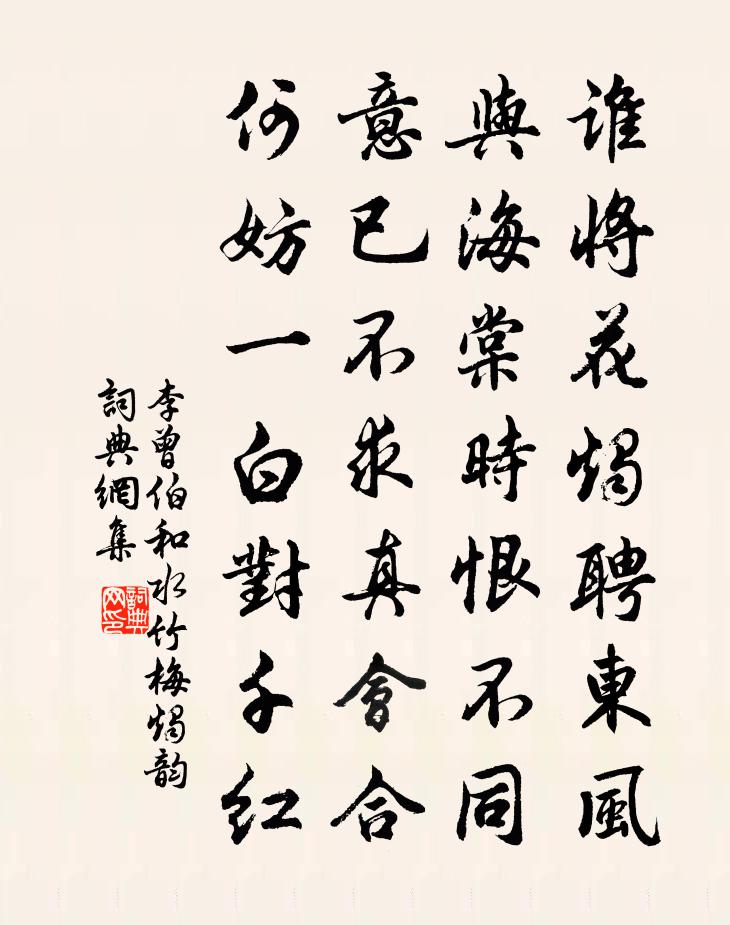 誰將花燭聘東風
與海棠時恨不同
意已不求真會合
何妨一白對千紅
李曾伯和水竹梅燭韵
詞典網集
詞典网印